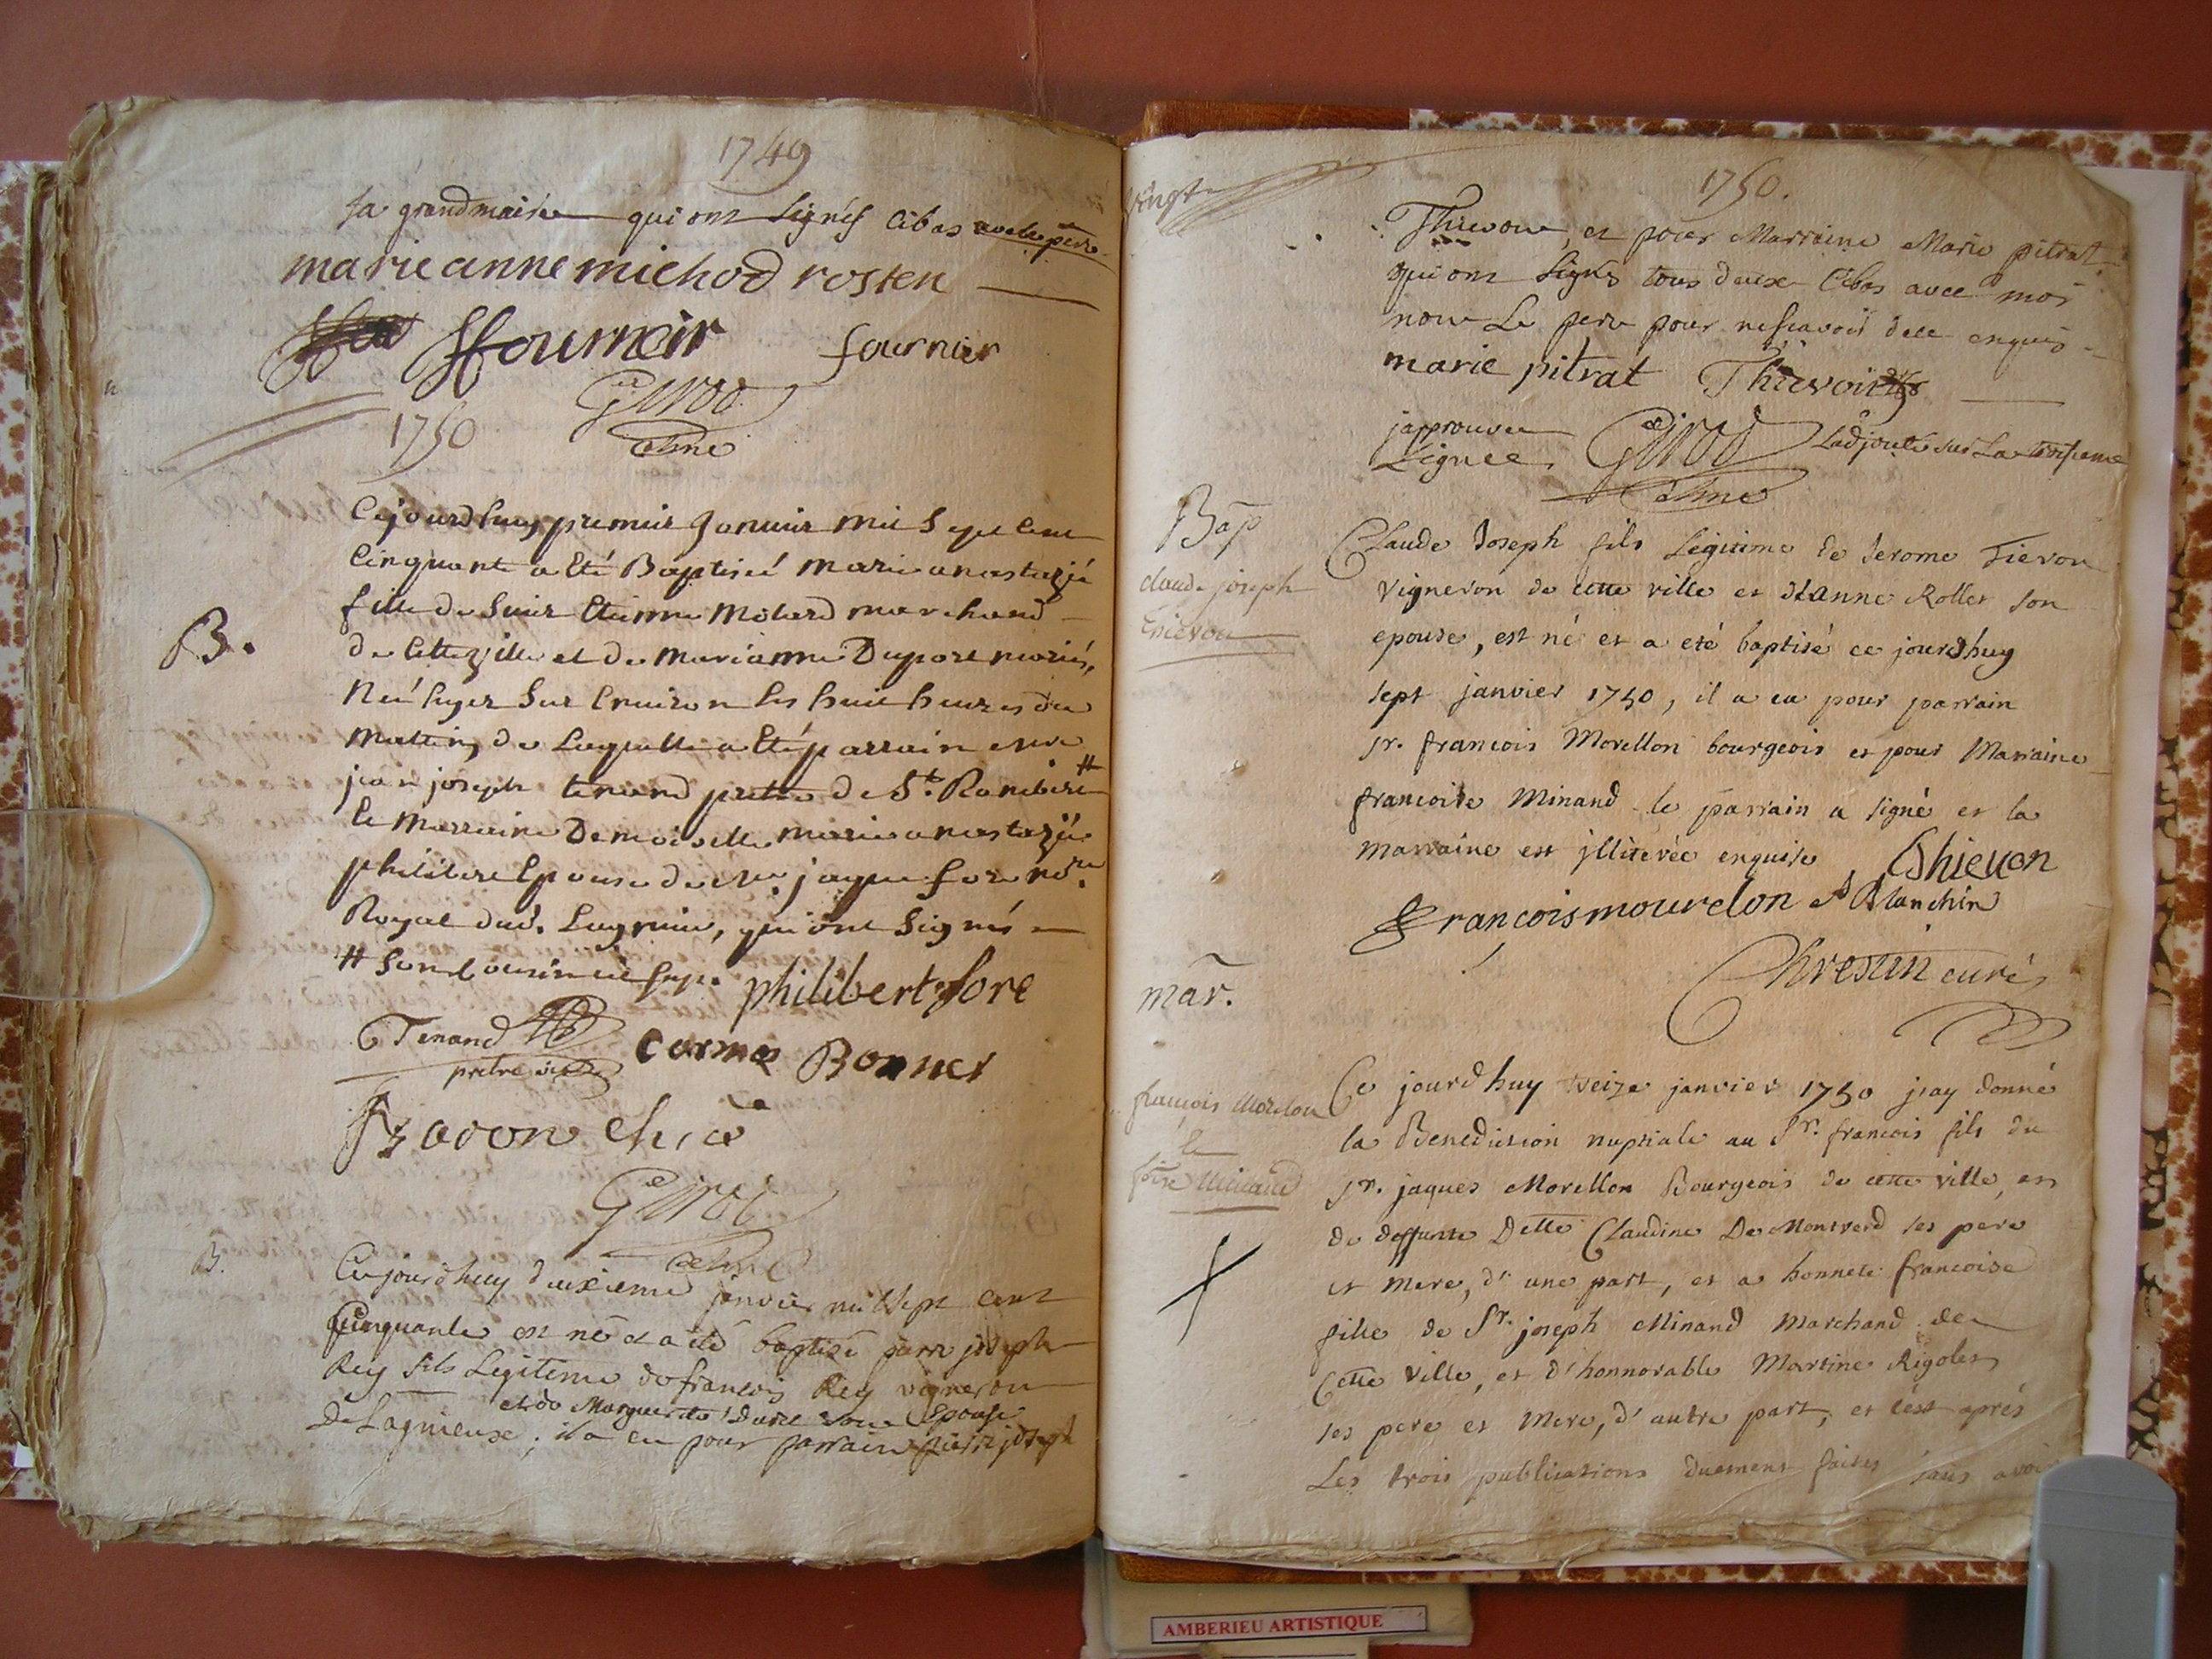 1749
sa grandmaire qui ont signés cibas avec le pere
marie anne michod rosten
ffournier fournier
Girod
aine
1750
B.
Cejourdhuy premier Janvier mil sept cent
cinquante a été Baptisé marie anastazie
fille de sieur Etienne Molard marchand
de cette ville et de marianne Duport mariés,
Née hyer sur environ les huit heures du
matin, de laquelle a été parrain
jean joseph tenand pretre de St. Rambert #
la marraine Demoiselle marie anastazie
philibert Epouse de jaque fore
Royal dud. Lagnieu, qui ont signés
# son cousin
philibert fore
Tenand
pretre
Bonnet
Girod
aine
B.
Cejourdhuy deuxieme janvier mil sept cent
cinquante est né et a été baptisé pierre joseph
Rey fils Legitime de francois Rey vigneron
et de Marguerite son Epouse
De Lagnieux; il a eu pour parrain pierre joseph
vingt
1750.
Thievon, et pour Marraine Marie pitrat
qui ont signés tous deux cibas avec moi
non le pere pour ne scavoir de ce enquis
marie pitrat Thievoin
japprouve Girod Ladjoute sur La troisieme
Lignee
aine
Bap
claude joseph
thievon
Claude Joseph fils Légitime de Jerome Tievon
vigneron de cette ville et d'Anne Rollet son
epouse, est né et a eté baptisé ce jourdhuy
sept janvier 1750, il a eu pour parrain
sr. francois Morellon bourgeois et pour Marraine
francoise Minand le parrain a signé et la
marraine est jlliterée enquise Thievon
francois mourelon Blanchin
Chrestin curé
mar.
françois Morelon
et
foise Minand
Ce jourdhuy treize janvier 1750 jay donné
la Benediction nuptiale au Sr. francois fils du
sr. jaques Morellon Bourgeois de cette ville, et
de deffunte Delle Claudine De Montverd ses pere
et mere, d'une part, et a honnete francoise
fille de Sr. joseph Minand Marchand de
Cette ville, et d'honnorable Martine Rigolet
ses pere et mere, d'autre part, et c'est aprés
Les trois publications duement faites sans avoir
AMBERIEU ARTISTIQUE